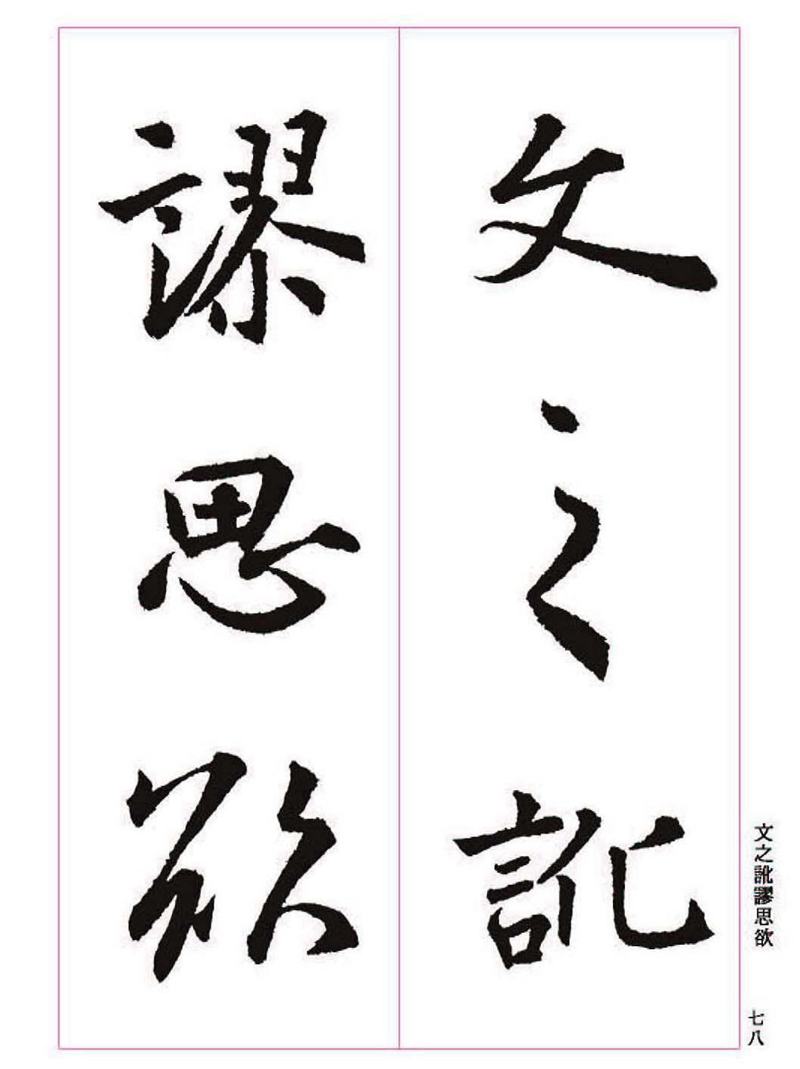 文之訛
謬思欲
文之訛謬思欲
七八